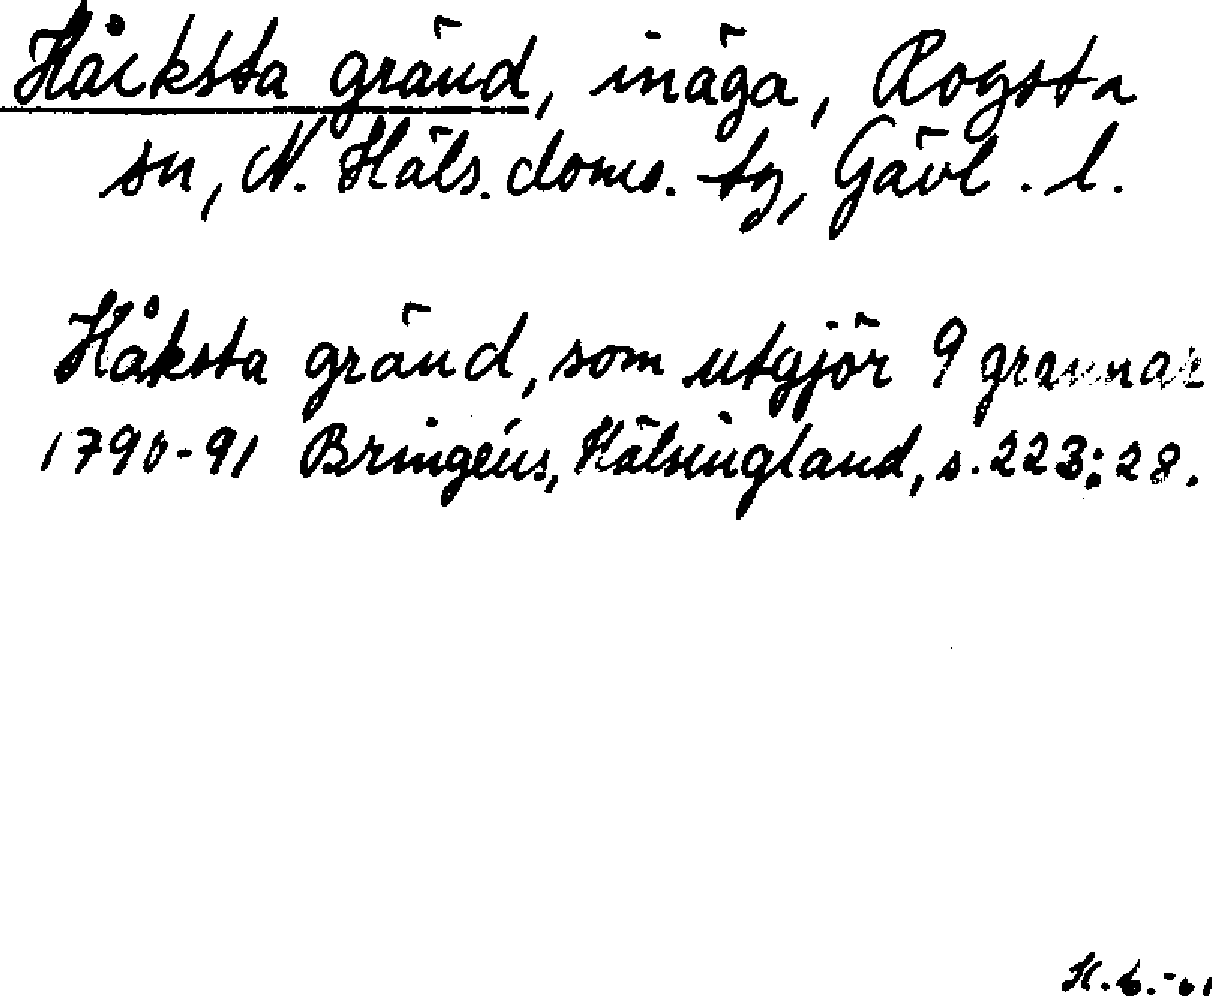 Håcksta gränd, inäga, Rogsta
sn, N. Häls. doms. tg, Gävl. l.
Håksta gränd, som utgjör 9 grannar
1790-91 Bringéus, Hälsingland, s. 223:28.